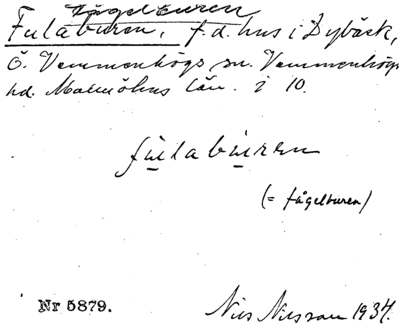 Fågelburen
Fulaburen, f.d. hus i Dybäck,
Ö. Vemmenhögs sn. Vemmenhögs
hd. Malmöhus län. i 10.
fulaburen
(= fågelburen)
Nr 5879. Nils Nilsson 1937.